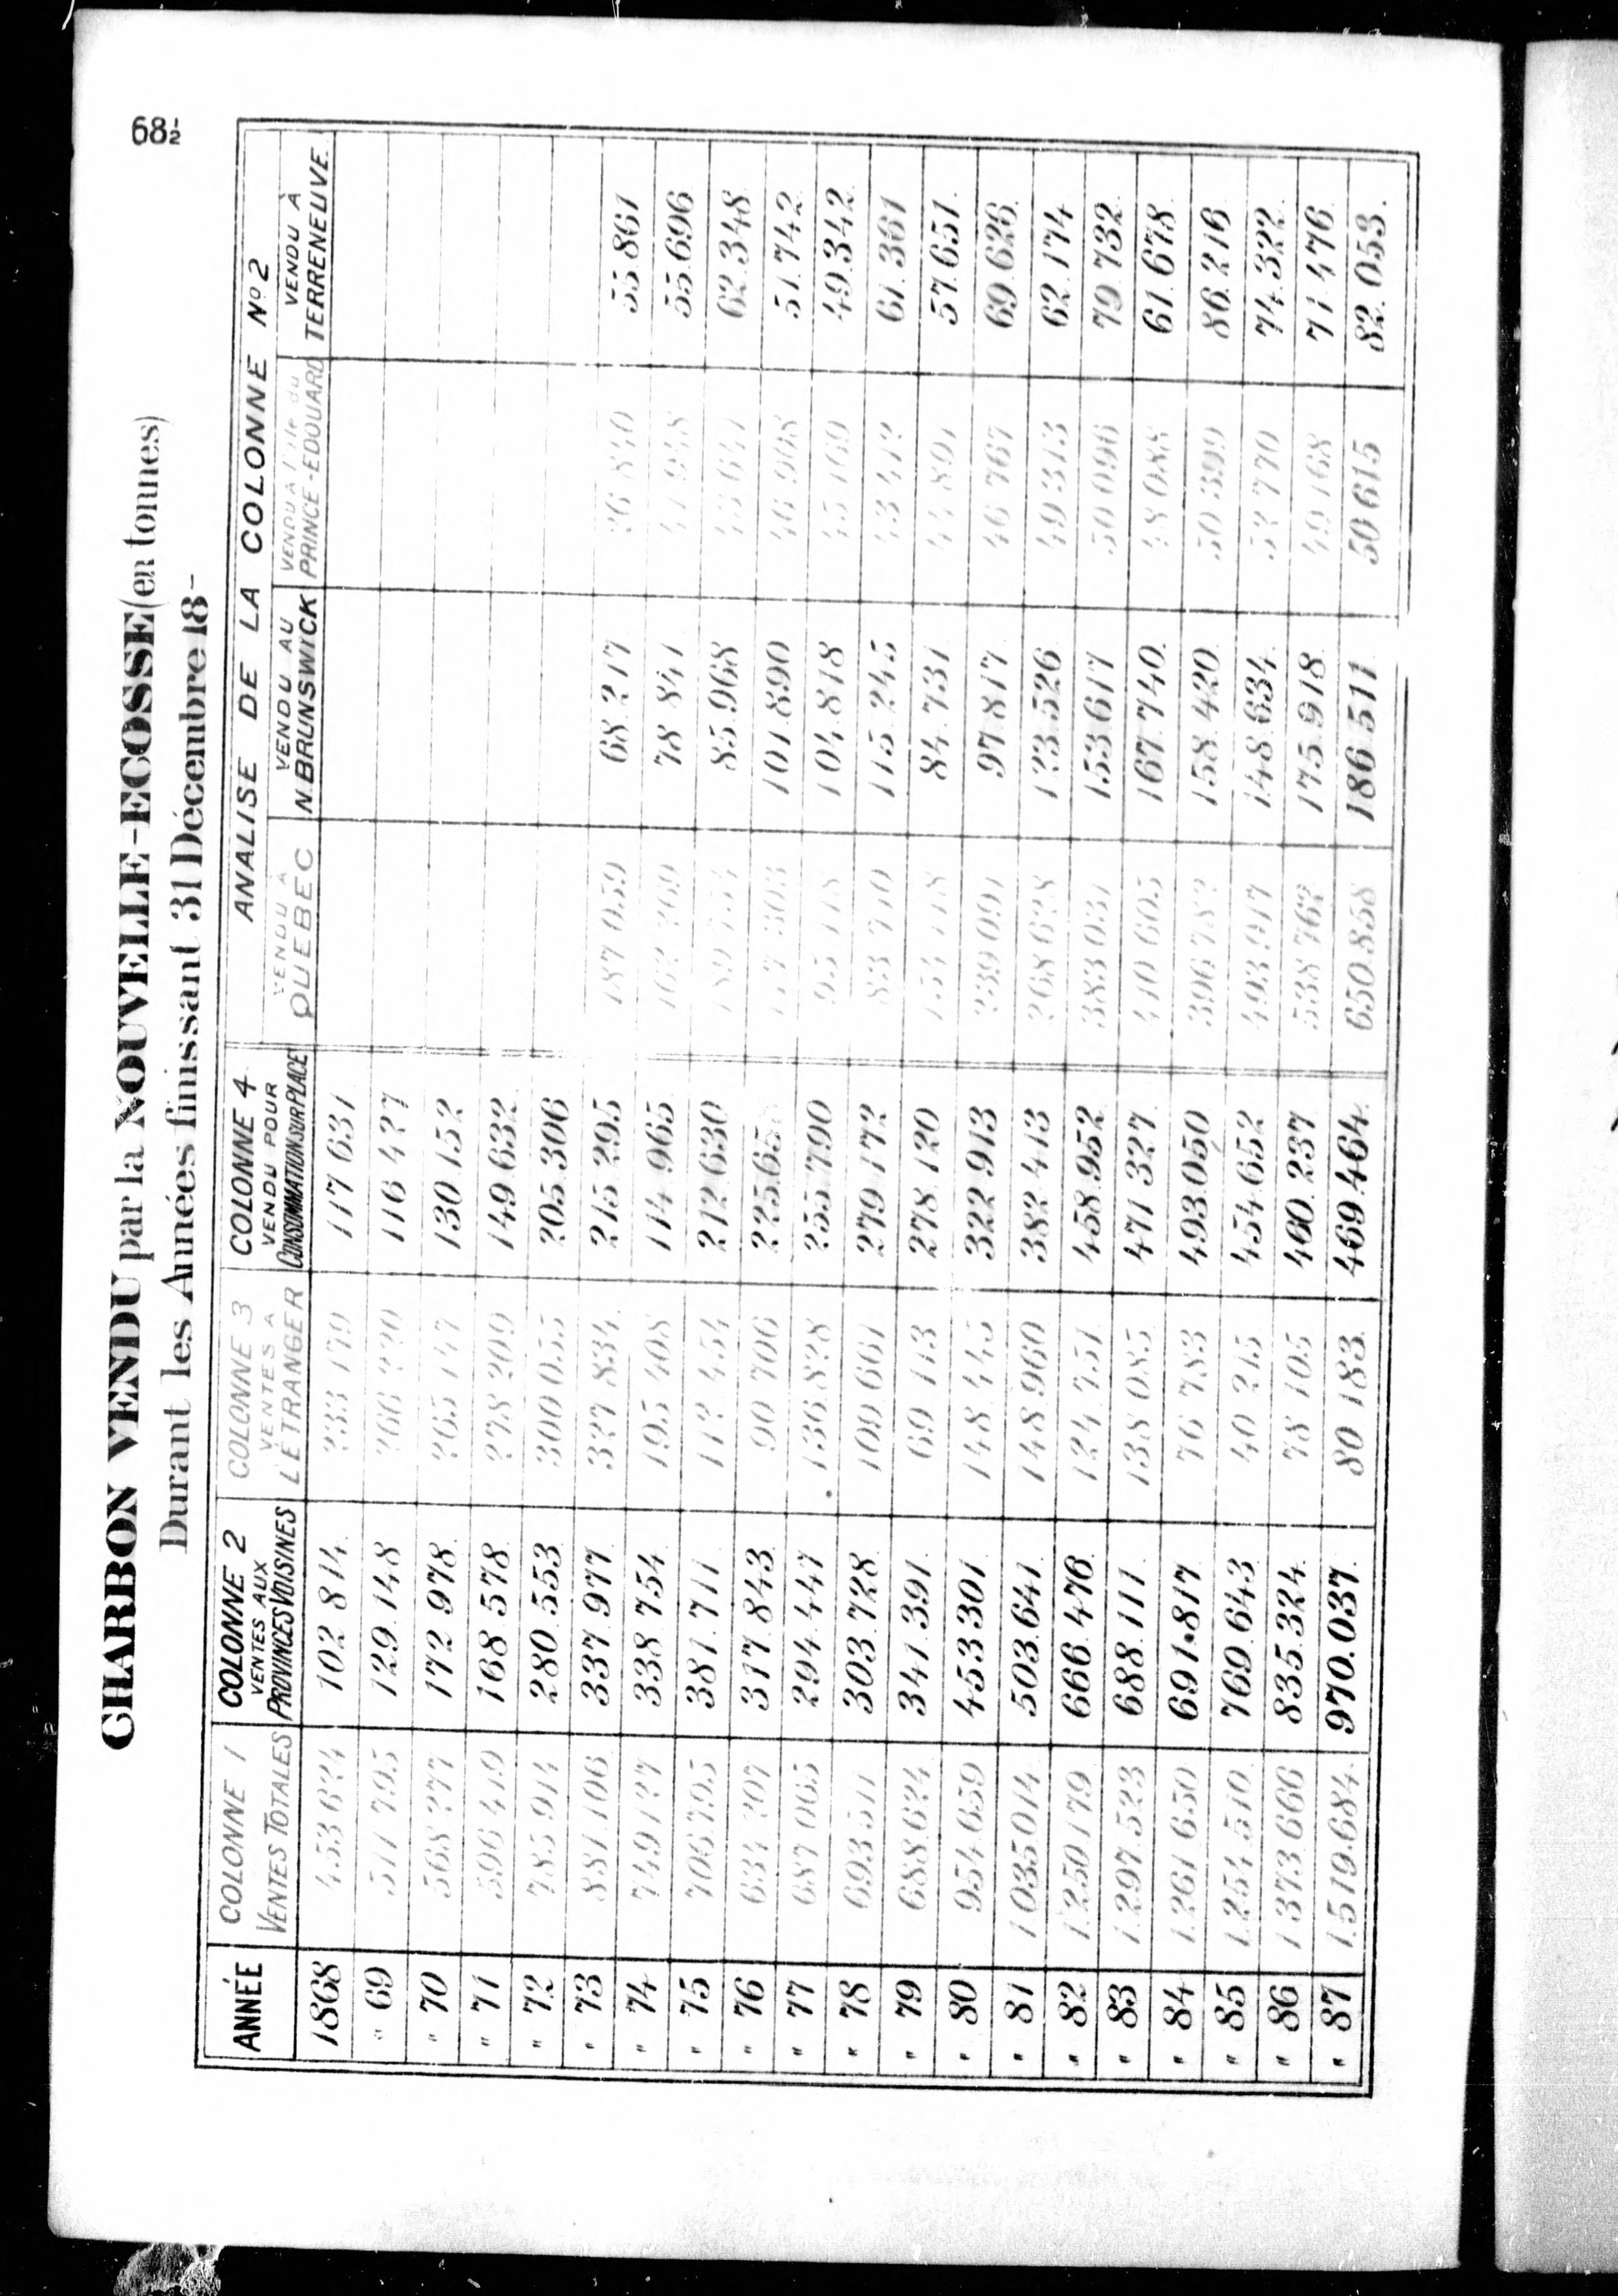 68½
CHARBON VENDU par la NOUVELLE-ECOSSE (en tonnes)
Durant les Années finissant 31 Décembre 18-
ANNÉE COLONNE 1 VENTES TOTALES COLONNE 2 VENTES AUX PROVINCES VOISINES COLONNE 3 VENTES A L'ÉTRANGER COLONNE 4 VENDU POUR CONSOMMATION SUR PLACE ANALISE DE LA COLONNE Nº 2 VENDU À QUEBEC VENDU AU N. BRUNSWICK VENDU À l'ile du PRINCE-EDOUARD VENDU À TERRENEUVE
1868 453 624 102 814 233 179 117 631
" 69 511 795 129.148 266 220 116 427
" 70 568 277 172.978 265 147 130 152
" 71 596 419 168.578 278 209 149.632
" 72 785.914 280.553 300 055 205.306
" 73 881.106 337.977 327 834 215.295 187 059 68 217 26 840 55 861
" 74 749.127 338 754 195 408 114 965 162 269 78 841 41 948 55.696
" 75 706.795 381.711 112 454 212 630 189 754 85.968 43 641 62.348
" 76 634 207 317.843 90 706 225.658 117 303 101.890 46 908 51.742
" 77 687 065 294.447 136.828 255.790 95 118 104.818 45 169 49.342
" 78 693.511 303.728 109 661 279.172 83 710 115.245 43 412 61.361
" 79 688.624 341.391 69 113 278.120 154 118 84.731 44 891 57.651
" 80 954.659 453 301 148 445 322 913 239 091 97.817 46 767 69.626
" 81 1 035 014 503.641 148 960 382 413 268 628 123.526 49 313 62.174
" 82 1.250.179 666.476 124.751 458.952 383 031 153.617 50 096 79.732
" 83 1.297.523 688.111 138 085 471 327 410 605 167.740 48 088 61.678
" 84 1.261.650 691.817 76 783 493.050 396 782 158.420 50 399 86.216
" 85 1.254.510 769.643 40 215 454.652 493.917 148.634 52 770 74.322
" 86 1 373.666 835.324 78 105 460.237 538 762 175.918 49 168 71 476
" 87 1.519.684 970.037 80 183 469.464 650.858 186 511 50 615 82.053